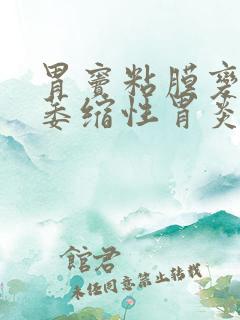 胃窦粘膜变
萎缩性胃炎
館君
未任同意禁止转载